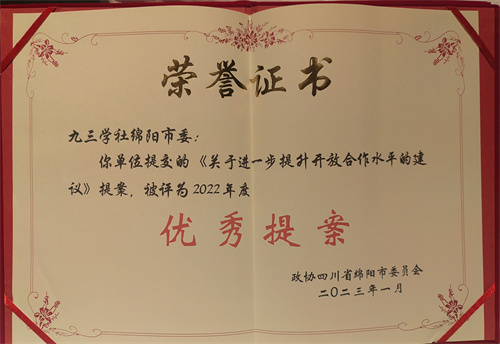 荣誉证书
九三学社绵阳市委：
你单位提交的《关于进一步提升开放合作水平的建
议》提案，被评为2022年度
优秀提案
政协四川省绵阳市委员会
二〇二三年一月